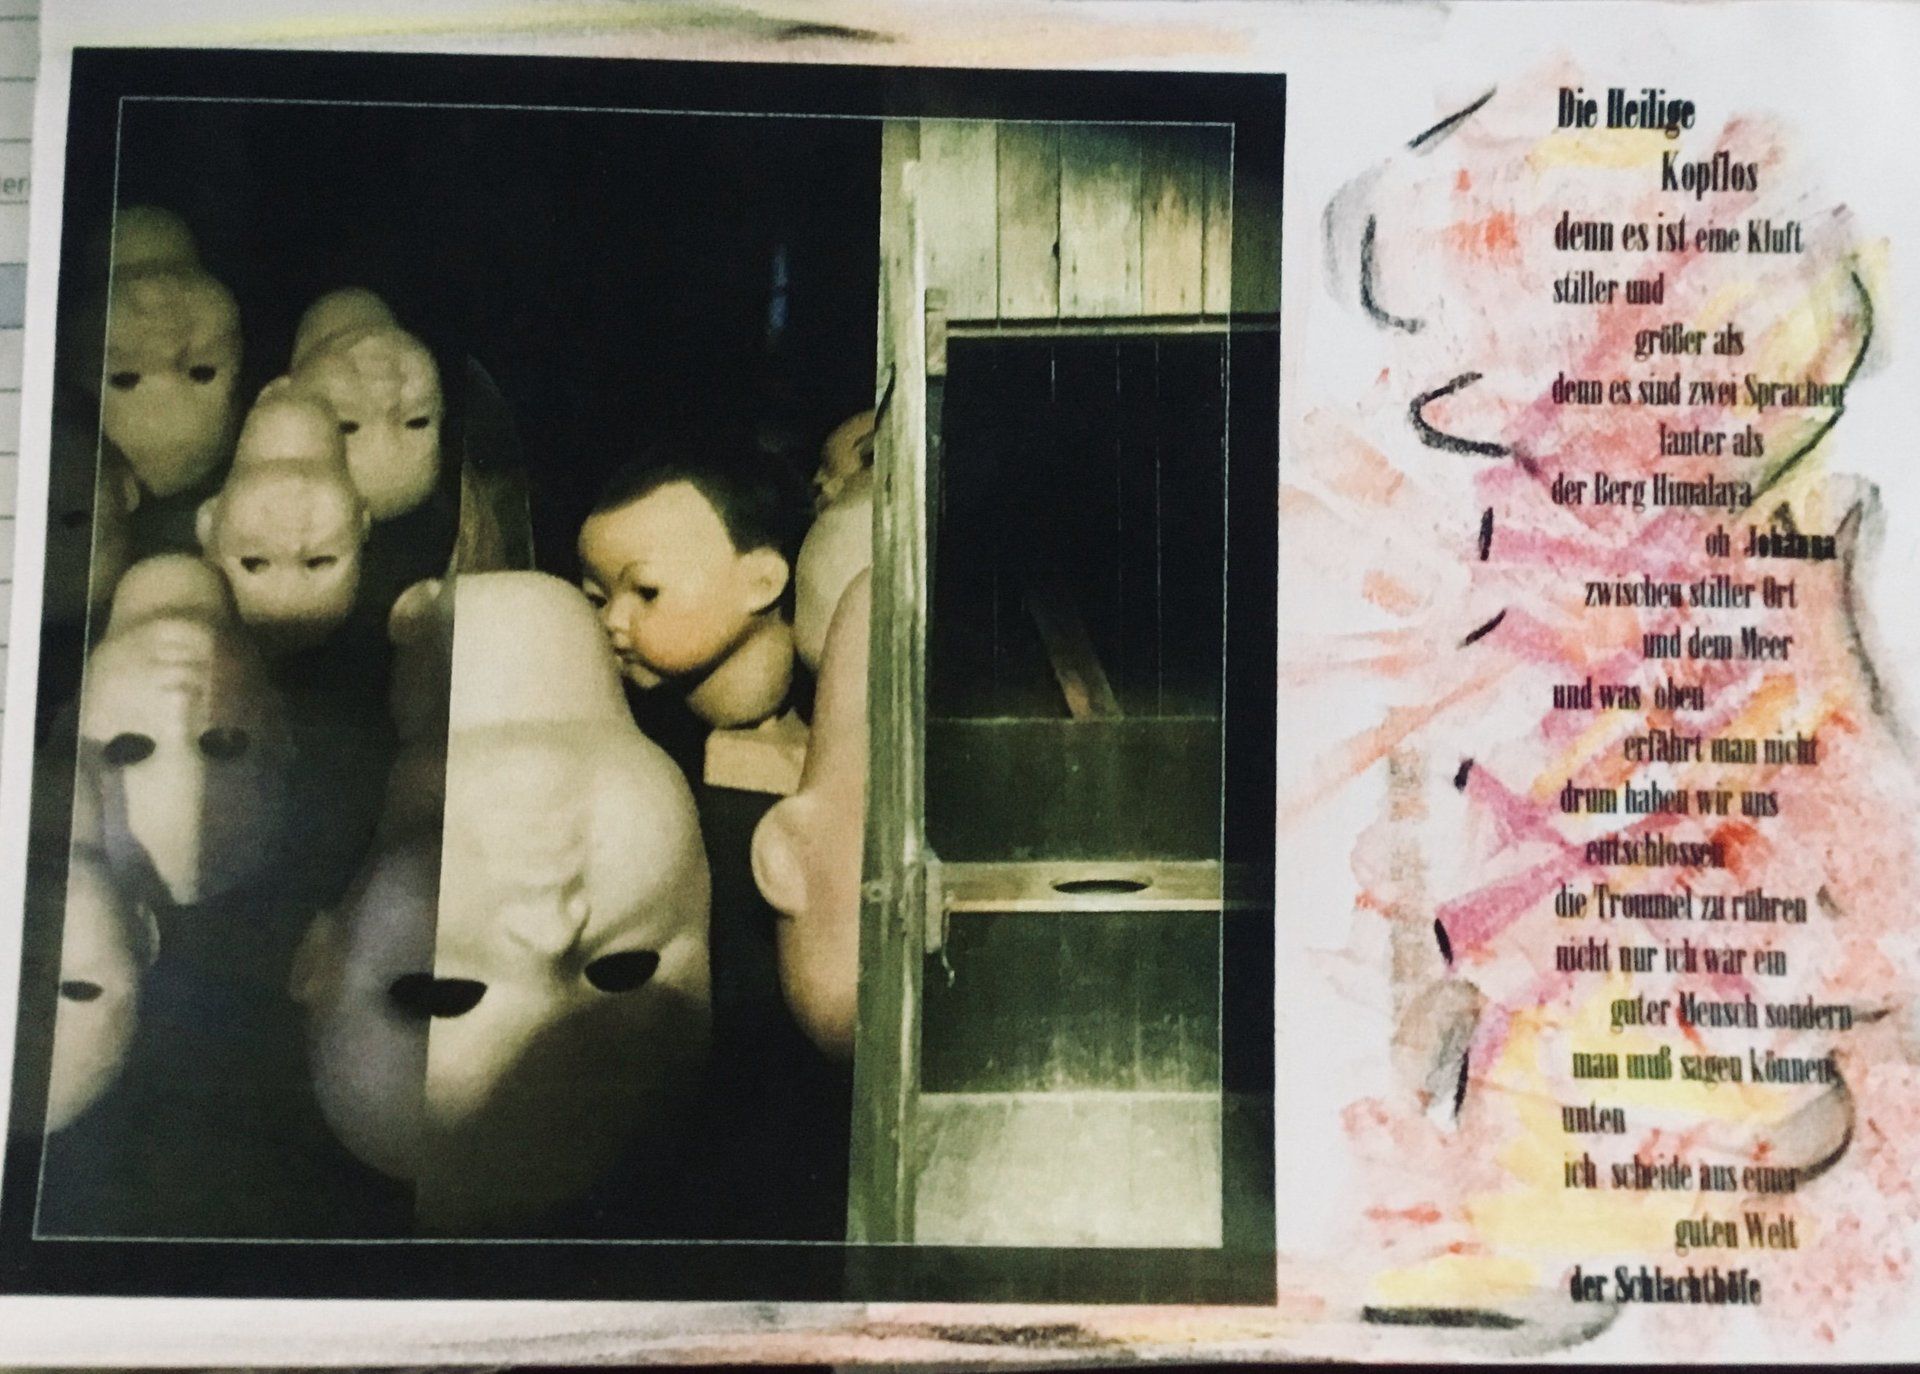 Die Heilige
Kopflos
denn es ist eine Kluft
stiller und
größer als
denn es sind zwei Sprachen
lauter als
der Berg Himalaya
oh Johanna
zwischen stiller Ort
und dem Meer
und was oben
erfährt man nicht
drum haben wir uns
entschlossen
die Trommel zu rühren
nicht nur ich war ein
guter Mensch sondern
man muß sagen können
unten
ich scheide aus einer
guten Welt
der Schlachthöfe